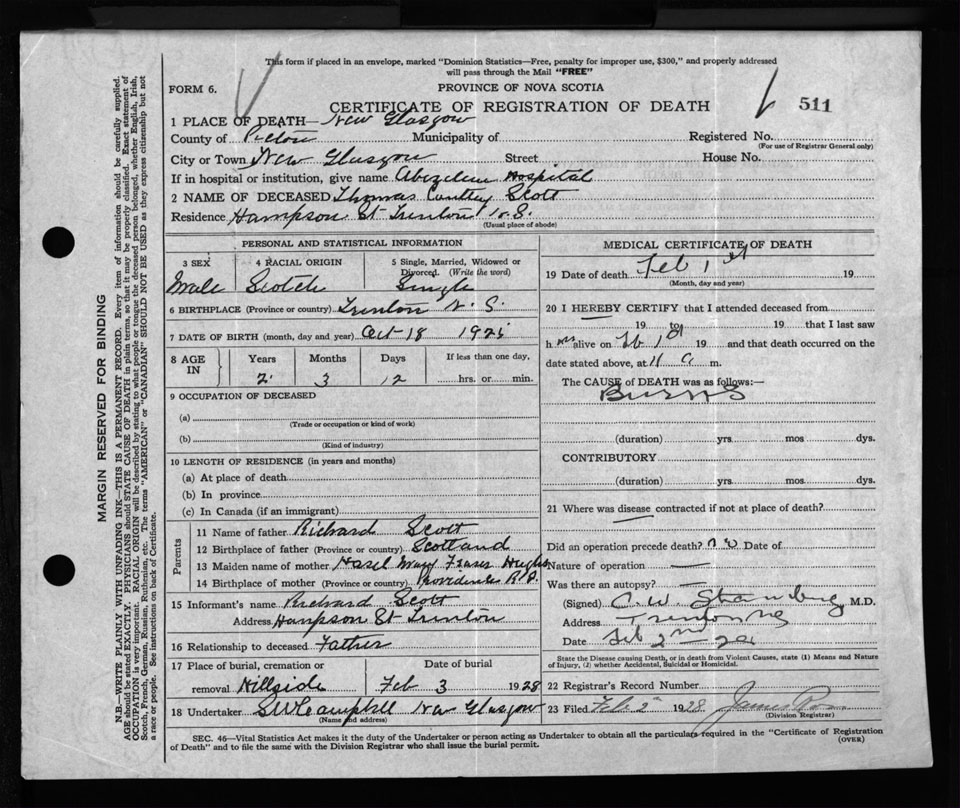 This form if placed in an envelope, marked "Dominion Statistics—Free, penalty for improper use, $300," and properly addressed
will pass through the Mail "FREE"
FORM 6.
PROVINCE OF NOVA SCOTIA
CERTIFICATE OF REGISTRATION OF DEATH
511
1 PLACE OF DEATH— New Glasgow
County of Pictou Municipality of Registered No.
(For use of Registrar General only)
City or Town New Glasgow Street House No.
If in hospital or institution, give name Aberdeen Hospital
2 NAME OF DECEASED Thomas Scott
Residence Hampson St Trenton N.S.
(Usual place of abode)
PERSONAL AND STATISTICAL INFORMATION
3 SEX 4 RACIAL ORIGIN 5 Single, Married, Widowed or
Divorced. (Write the word)
Male Scotch Single
6 BIRTHPLACE (Province or country) Trenton N. S.
7 DATE OF BIRTH (month, day and year) Oct 18 1925
8 AGE IN Years Months Days If less than one day,
2 3 12 hrs. or min.
9 OCCUPATION OF DECEASED
(a)
(Trade or occupation or kind of work)
(b)
(Kind of industry)
10 LENGTH OF RESIDENCE (in years and months)
(a) At place of death
(b) In province
(c) In Canada (if an immigrant)
Parents
11 Name of father Richard Scott
12 Birthplace of father (Province or country) Scotland
13 Maiden name of mother Hasel Mary Fraser Hughs
14 Birthplace of mother (Province or country) Providence R.I.
15 Informant's name Richard Scott
Address Hampson St Trenton
16 Relationship to deceased Father
17 Place of burial, cremation or Date of burial
removal Hillside Feb 3 1928
18 Undertaker Campbell New Glasgow
(Name and address)
MEDICAL CERTIFICATE OF DEATH
19 Date of death Feb 1st 19
(Month, day and year)
20 I HEREBY CERTIFY that I attended deceased from
19 to 19 that I last saw
h alive on Feb 1st 19 and that death occurred on the
date stated above, at 11 a m.
The CAUSE of DEATH was as follows:—
Burns
(duration) yrs. mos dys.
CONTRIBUTORY
(duration) yrs. mos dys.
21 Where was disease contracted if not at place of death?
Did an operation precede death? no Date of
Nature of operation —
Was there an autopsy? —
(Signed) C. W. M.D.
Address Trenton NS
Date Feb 2nd
State the Disease causing Death, or in death from Violent Causes, state (1) Means and Nature
of Injury, (2) whether Accidental, Suicidal or Homicidal.
22 Registrar's Record Number
23 Filed Feb 2 1928 James
(Division Registrar)
SEC. 46—Vital Statistics Act makes it the duty of the Undertaker or person acting as Undertaker to obtain all the particulars required in the "Certificate of Registration
of Death" and to file the same with the Division Registrar who shall issue the burial permit.
(OVER)
MARGIN RESERVED FOR BINDING
N.B.—WRITE PLAINLY WITH UNFADING INK—THIS IS A PERMANENT RECORD. Every item of information should be carefully supplied.
AGE should be stated EXACTLY. PHYSICIANS should STATE CAUSE OF DEATH in plain terms, so that it may be properly classified. Exact statement of
OCCUPATION is very important. RACIAL ORIGIN will be described by stating to what people or tongue the deceased person belonged, whether English, Irish,
Scotch, French, German, Russian, Ruthenian, etc. The terms "AMERICAN" or "CANADIAN" SHOULD NOT BE USED as they express citizenship but not
a race or people. See instructions on back of Certificate.